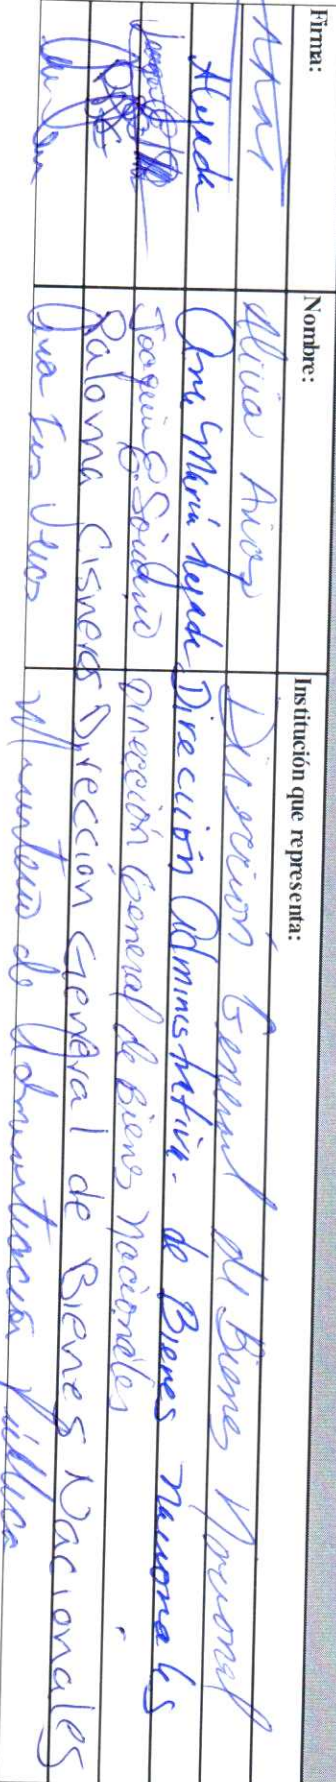 Firma: Nombre: Institución que representa:
Alicia Dirección General de Bienes Nacional
Tejeda Ana María Tejeda Dirección Administrativa. de Bienes Nacionales
Joaquin Dirección General de Bienes Nacionales
Paloma Cisneros Dirección General de Bienes Nacionales
Ministerio de Administración Pública